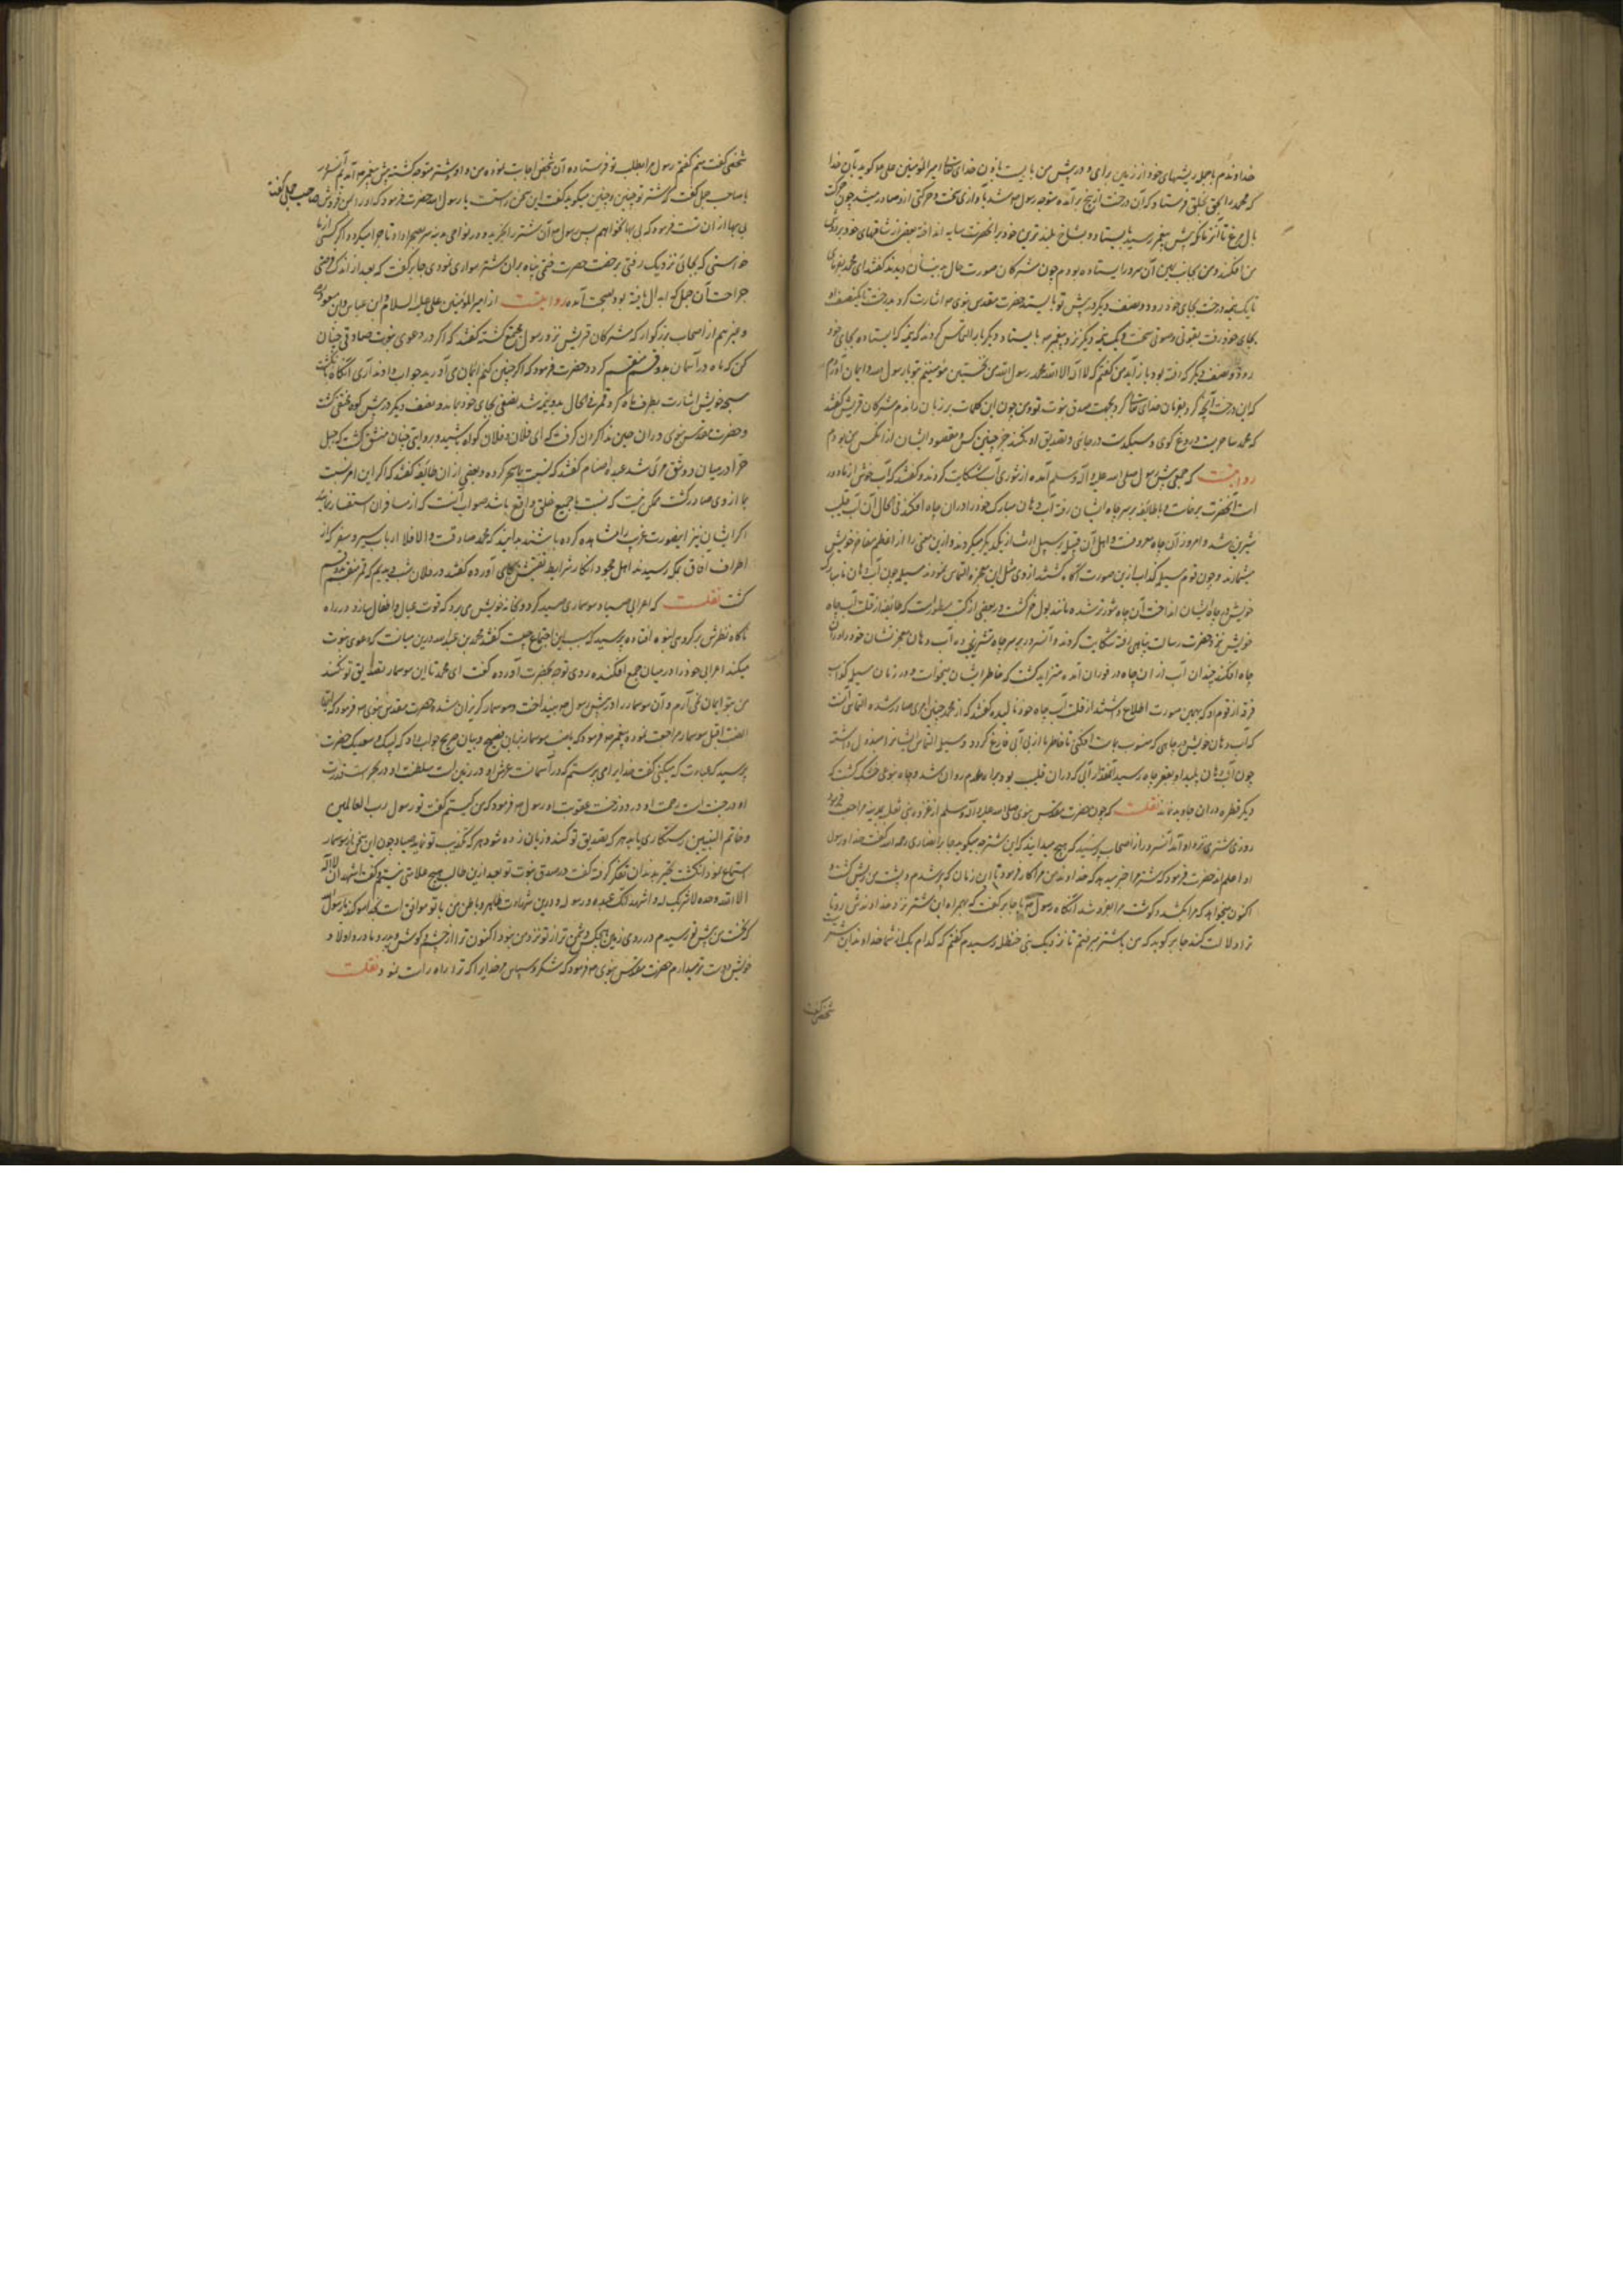 خداوندم با جمله ریشهای خود از زمین برآی و در پیش من بایست باذن خدای تعالی امیر المؤمنین علی گوید بآن خدا
که محمد را بحق بخلق فرستاد که آن درخت از بیخ برآمده متوجه رسول شد با آوازی سخت و حرکتی ازو صادر میشد چون حرکت
بال مرغ تا آنکه پیش پیغمبر رسید بایستاد و شاخ بلندترین خود بر آنحضرت سایه انداخته بعضی از شاخهای خود بر دوش
من افکند و من بجانب یمین آن سرور ایستاده بودم چون مشرکان صورت حال بدینسان دیدند گفتند ای محمد بفرمای
تا یک نیمه درخت بجای خود رود و نصف دیگر در پیش تو بایستد حضرت مقدس نبوی اشارت کرد بدرخت تا یک نصف او
بجای خود رفت بصوتی سخت و یک نیمه دیگر نزد پیغمبر بایستاد دیگر باره التماس کردند که نیمه که ایستاده بجای خود
رود و نصف دیگر که رفته بود باز آید من گفتم که لا اله الا الله محمد رسول الله من نخستین مؤمنینم بتو یا رسول الله و ایمان آوردم
که این درخت آنچه کرد بفرمان خدای تعالی کرد بجهت صدق نبوت تو و من چون این کلمات بر زبان راندم مشرکان قریش گفتند
که محمد ساحریست دروغ گوی و سبکدست در جائی و تصدیق او نکند جز چنین کس و مقصود ایشان از آنکس من بودم
روایتست که جمعی پیش رسول صلی الله علیه و آله وسلم آمده از شوری آب شکایت کردند و گفتند که آب خوش از ما دور
است آنحضرت برخاست و با طایفه بر سر چاه ایشان رفته آب دهان مبارک خود را در آن چاه افکند فی الحال آن آب قلیب
شیرین شد و امروز آن چاه معروفست و اهل آن قبیله بر سبیل ارث از یکدیگر میگیرند و ازین معنی را از اعظم مفاخر خویش
میشمارند و چون قوم مسیلمه کذاب ازین صورت آگاه گشتند از وی مثل این معجزه التماس نمودند مسیلمه چون آب دهان نامبارک
خویش در چاه ایشان انداخت آن چاه شورتر شده مانند بول خر گشت و در بعضی از کتب مسطورست که طایفه از قلت آب چاه
خویش نزد حضرت رسالت پناهی رفته شکایت کردند و آنسرور بر سر چاه تشریف برده آب دهان معجزنشان خود را در آن
چاه افکند چندان آب از آن چاه در فوران آمده متزاید گشت که خاطر ایشان میخواست و در زمان مسیلمه کذاب
فرقه از قوم او که بهمین صورت اطلاع داشتند از قلت آب چاه خود نالیده گفتند که از محمد چنین امری صادر شده التماس آنست
که آب دهان خویش در چاهی که منسوب بماست افکنی تا خاطر ما از بی آبی فارغ گردد و مسیلمه التماس ایشانرا مبذول داشته
چون آب دهان پلید او بقعر چاه رسید آنقدر آبی که در آن قلیب بود براه عدم روان شد و چاه بنوعی خشک گشت که
دیگر قطره در آن چاه پدید نیامد نقلست که چون حضرت مقدس نبوی صلی الله علیه و آله وسلم از غزوه بنی ثعلبه بمدینه مراجعت فرمود
روزی شتری نزد او آمد آنسرور از اصحاب پرسید که هیچ میدانید که این شتر چه میگوید جابر انصاری رحمه الله گفت خدا و رسول
او اعلم اند حضرت فرمود که شتر مرا خبر میدهد که خداوند من مرا کار فرمود تا این زمان که پیر شدم و پشت من ریش گشت و
اکنون میخواهد که مرا بکشد و گوشت مرا بفروشد آنگاه رسول با جابر گفت که همراه این شتر نزد خداوندش رو تا
ترا دلالت کند جابر گوید که من با شتر میرفتم تا نزدیک بنی حنظله رسیدم گفتم که کدام یک از شما خداوند این شتر است
شخصی گفت
شخصی گفت منم گفتم رسول مرا بطلب تو فرستاده آن شخص اجابت نموده من و او و شتر متوجه گشته پیش پیغمبر آمدیم آنسرور
با صاحب جمل گفت که شتر تو چنین و چنین میگوید گفت این سخن راستست یا رسول الله حضرت فرمود که او را بمن فروش صاحب جمل گفت
بی بها از آن تست فرمود که بی بها نخواهم پس رسول آن شتر را بخریده و در نواحی مدینه سر بصحرا داد تا چرا میکرد و اگر کسی از ما
خواستی که بجائی نزدیک رفتی برخصت حضرت ختمی پناه بر آن شتر سواری نمودی جابر گفت که بعد از اندک فرصتی
جراحت آن جمل که اندمال یافته بود بصحت آمده روایتست از امیر المؤمنین علی علیه السلام و ابن عباس و ابن مسعود
و غیرهم از اصحاب بزرگوار که مشرکان قریش نزد رسول مجتمع گشته گفتند که اگر در دعوی نبوت صادقی چنان
کن که ماه در آسمان بدو قسم منقسم گردد حضرت فرمود که اگر چنین کنم ایمان می آورید جواب دادند آری آنگاه بانگشت
سبحه خویش اشارت بطرف ماه کرد قمر فی الحال بدو نیمه شد نصفی بجای خود بماند و نصف دیگر در پس کوه مخفی گشت
و حضرت مقدس نبوی در آن حین ندا کردن گرفت که ای فلان و فلان گواه باشید و بروایتی چنان منشق گشت که جبل
حرا در میان دو شق مرئی شد عبده اصنام گفتند که نسبت بما سحر کرده و بعضی از آن طائفه گفتند که اگر این امر نسبت
بما از وی صادر گشت ممکن نیست که نسبت با جمیع خلق واقع باشد صواب آنست که از مسافران استفسار نمائیم
اگر ایشان نیز اینصورت غریب را مشاهده کرده باشند بدانید که محمد صادقست و الا فلا ارباب سیر و سفر که از
اطراف آفاق بمکه رسیدند اهل جحود و انکار شرایط تفتیش بجای آورده گفتند در فلان شب دیدیم که قمر منقسم بدو قسم
گشت نقلست که اعرابی صیاد سوسماری صید کرده و بخانه خویش می برد که قوت عیال و اطفال سازد در راه
ناگاه نظرش بر گروهی انبوه افتاده پرسید که سبب این اجتماع چیست گفتند محمد بن عبدالله درین میانست که دعوی نبوت
میکند اعرابی خود را در میان جمع افکنده روی توجه بحضرت آورده گفت ای محمد تا این سوسمار تصدیق تو نکند
من بتو ایمان نمی آرم و آن سوسمار را در پیش رسول بینداخت و سوسمار گریزان شد حضرت مقدس نبوی فرمود که ایها
الضب اقبل سوسمار مراجعت نموده پیغمبر فرمود که یا ضب سوسمار بزبان فصیح و بیان صریح جواب داد که لبیک و سعدیک حضرت
پرسید که عبادت که میکنی گفت خدایرا می پرستم که در آسمانست عرش او و در زمین است سلطنت او و در بحر است قدرت
او در جنت است رحمت او و در دوزخست عقوبت او رسول فرمود که من کیستم گفت تو رسول رب العالمین
و خاتم النبیین رستگاری یابد هر که تصدیق تو کند و زیان زده شود هر که تکذیب تو نماید صیاد چون این سخن از سوسمار
استماع نمود انگشت تحیر بدندان تفکر گرفته گفت در صدق نبوت تو بعد ازین طالب هیچ علامتی نیستم و گفت اشهد ان لا اله
الا الله وحده لا شریک له و اشهد انک عبده و رسوله و درین شهادت ظاهر و باطن من با تو موافق است بخدا سوگند یا رسول الله
که نخست من پیش تو رسیدم در روی زمین هیچکس دشمن تر از تو نزد من نبود اکنون ترا از چشم و گوش و پدر و مادر و اولاد
خویش دوست تر میدارم حضرت مقدس نبوی فرمود که شکر و سپاس مر خدایرا که ترا براه راست نمود نقلست